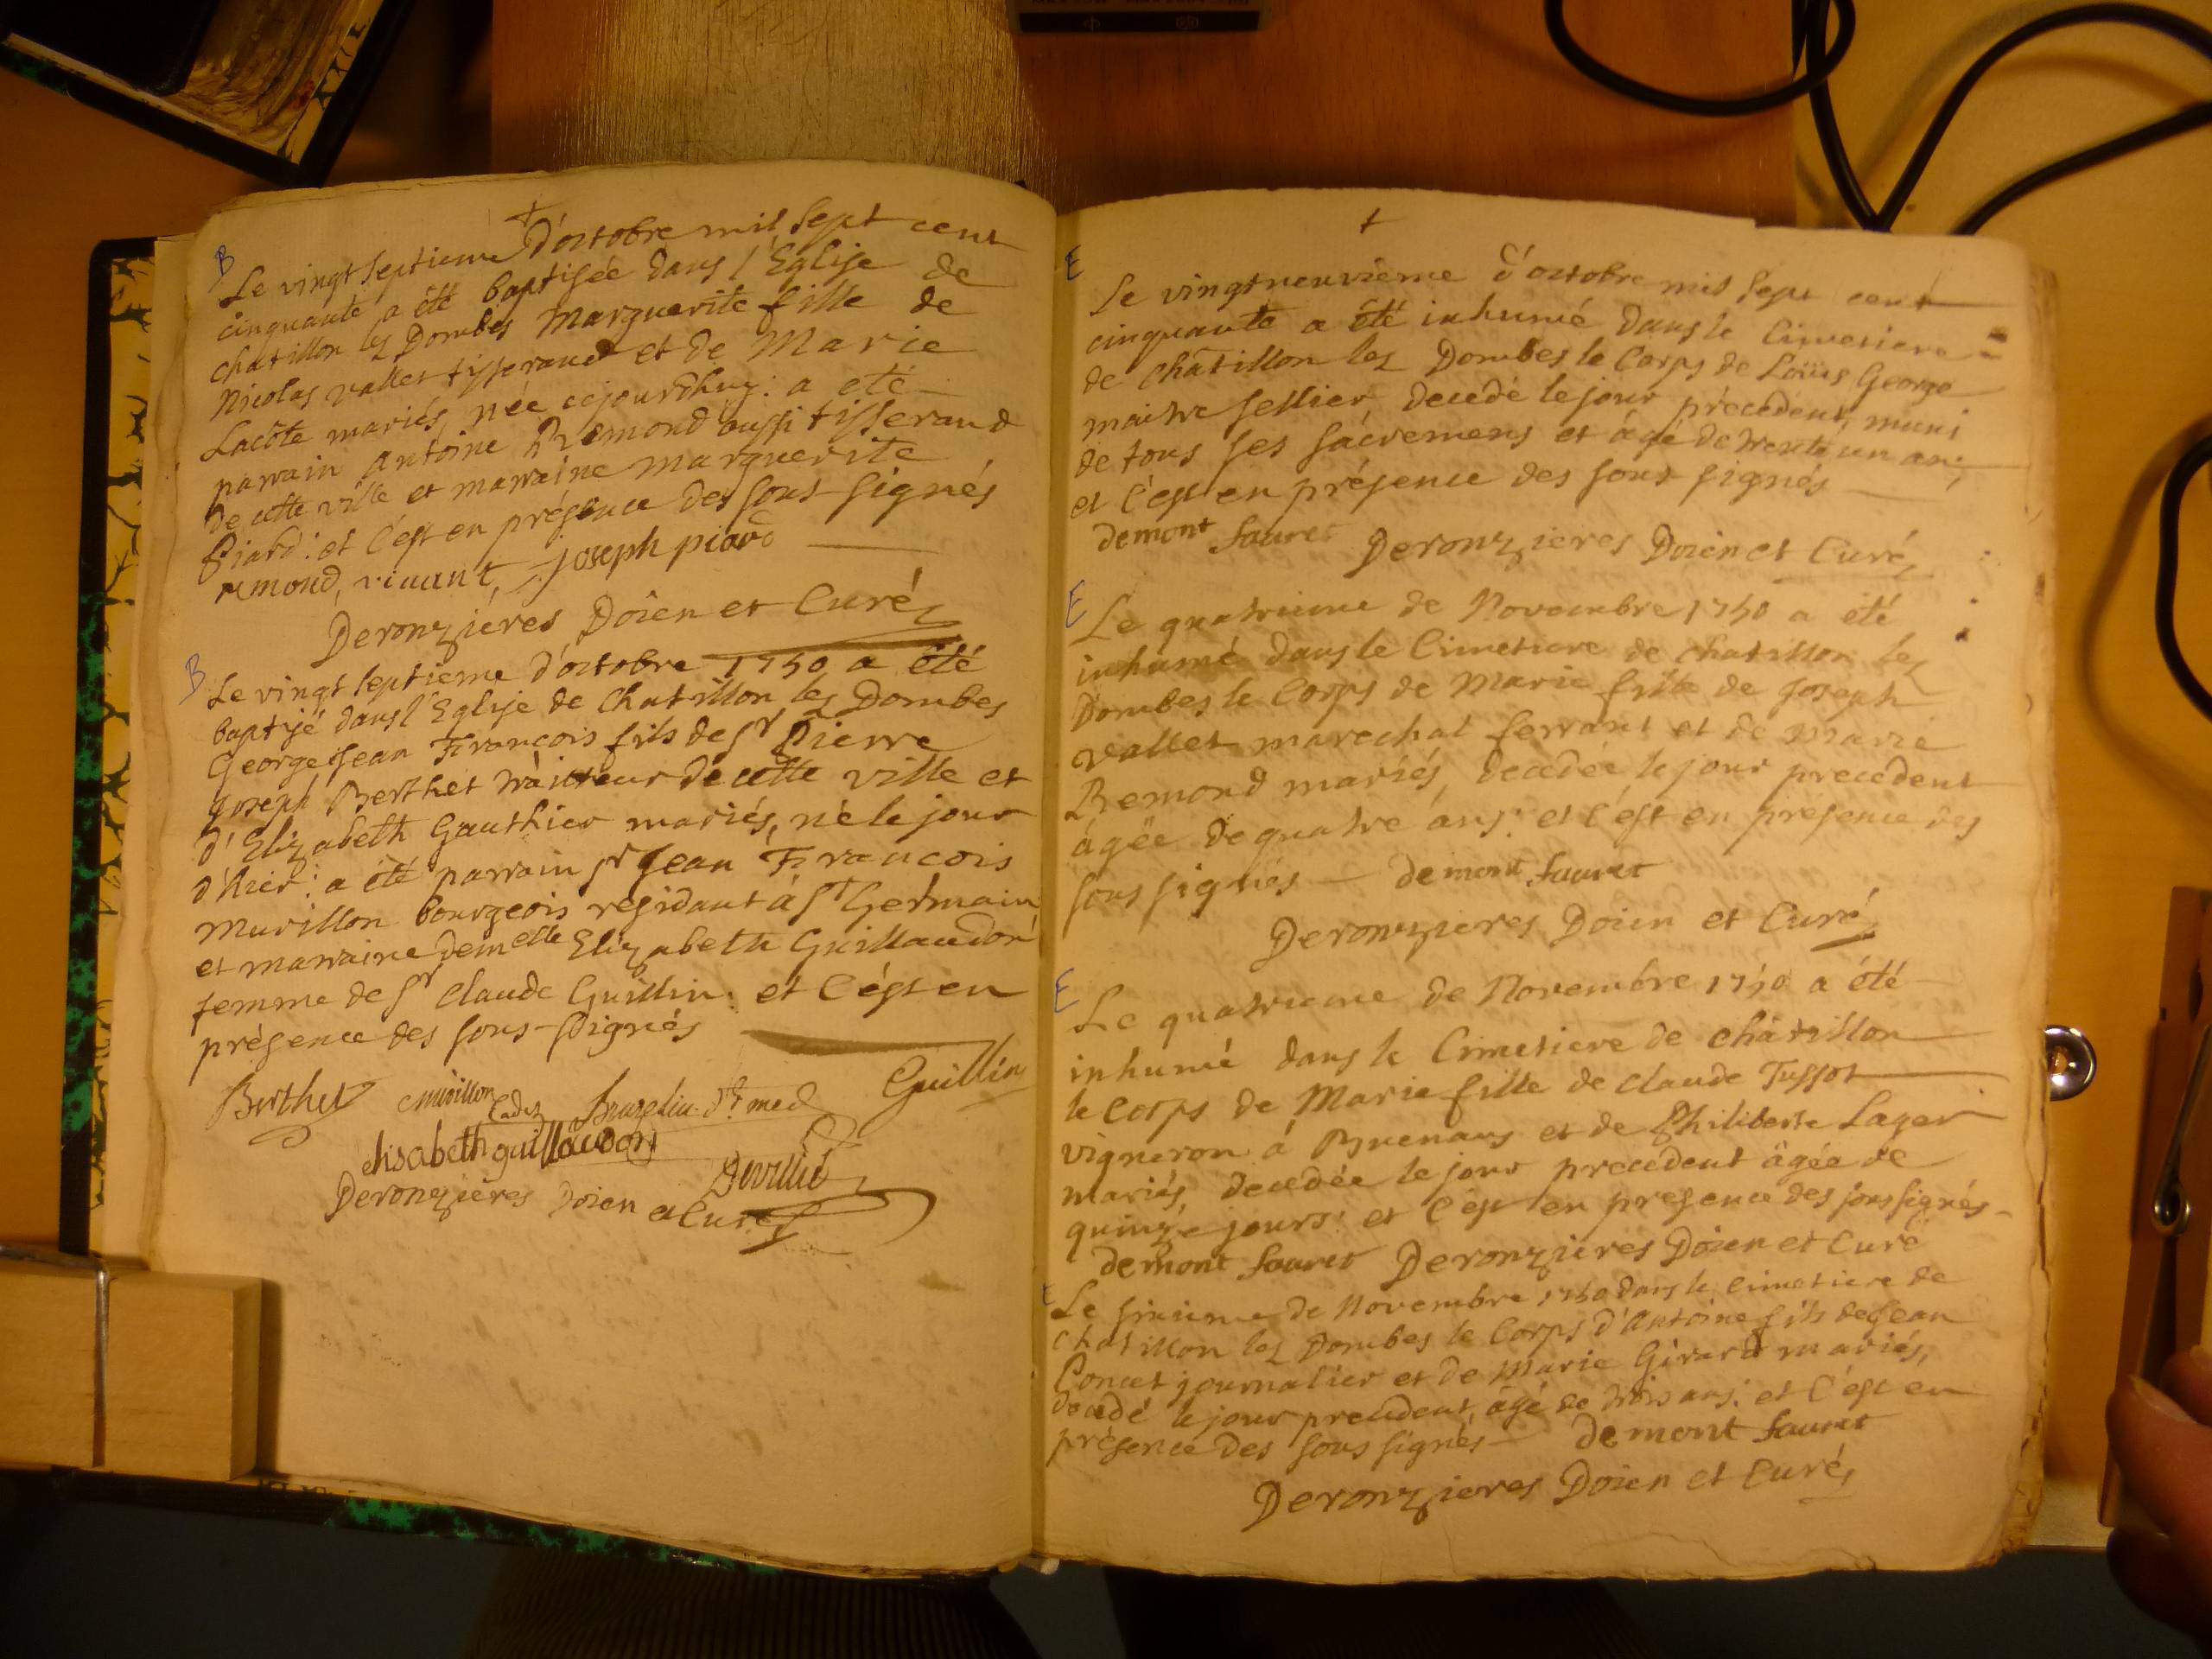 +
B
Le vingt septieme d'octobre mil sept cent
cinquante a été baptisée dans l'Eglise de
chatillon les Dombes Marguerite fille de
Nicolas vallet tisserand et de Marie
Lacôte mariés, née cejourdhuy: a eté
parrain Antoine Remond aussi tisserand
de cette ville et marraine marguerite
Piard: et c'est en présence des sous-signés
remond, vivant, joseph piard
Deronzieres Doien et Curé
B
Le vingt septieme d'octobre 1750 a été
baptisé dans l'Eglise de Chatillon les Dombes
George Jean Francois fils de Sr Pierre
Joseph Berthet traitteur de cette ville et
d'Elizabeth Gauthier mariés, né le jour
d'hier: a été parrain Sr Jean Francois
Murillon bourgeois residant à St Germain
et marraine demelle Elizabeth Guillaudon
femme de Sr claude Guillin: et c'est en
présence des sous-signés
Berthet Murillon Cadet drt med Guillin
elisabeth guillaudon
Devillié
Deronzieres Doien et Curé
+
E
Le vingt neuvieme d'octobre mil sept cent
cinquante a été inhumé dans le Cimetiere
de châtillon les Dombes le Corps de Loüis George
maitre sellier decedé le jour précedent, muni
de tous ses sacremens et agé de trente un ans,
et c'est en présence des sous signés
demont Sauret Deronzieres Doien et Curé
E
Le quatrieme de Novembre 1750 a été
inhumé dans le Cimetiere de chatillon les
Dombes le Corps de Marie fille de Joseph
vallet marechal ferrant et de Marie
Remond mariés, decedée le jour precedent
agée de quatre ans: et c'est en présence des
sous signés demont Sauret
Deronzieres Doien et Curé
E
Le quatrieme de Novembre 1750 a été
inhumé dans le Cimetiere de châtillon
le corps de Marie fille de claude Tussot
vigneron à Buenans et de Philiberte Lager
mariés, decedée le jour precedent âgée de
quinze jours: et c'est en presence des sous signés
demont Sauret Deronzieres Doien et Curé
E
Le sixieme de Novembre 1750 dans le cimetiere de
chatillon les Dombes le Corps d'Antoine fils de Jean
Poncet journalier et de Marie Girard mariés,
decedé le jour precedent, agé de trois ans: et c'est en
présence des sous signés demont Sauret
Deronzieres Doien et Curé